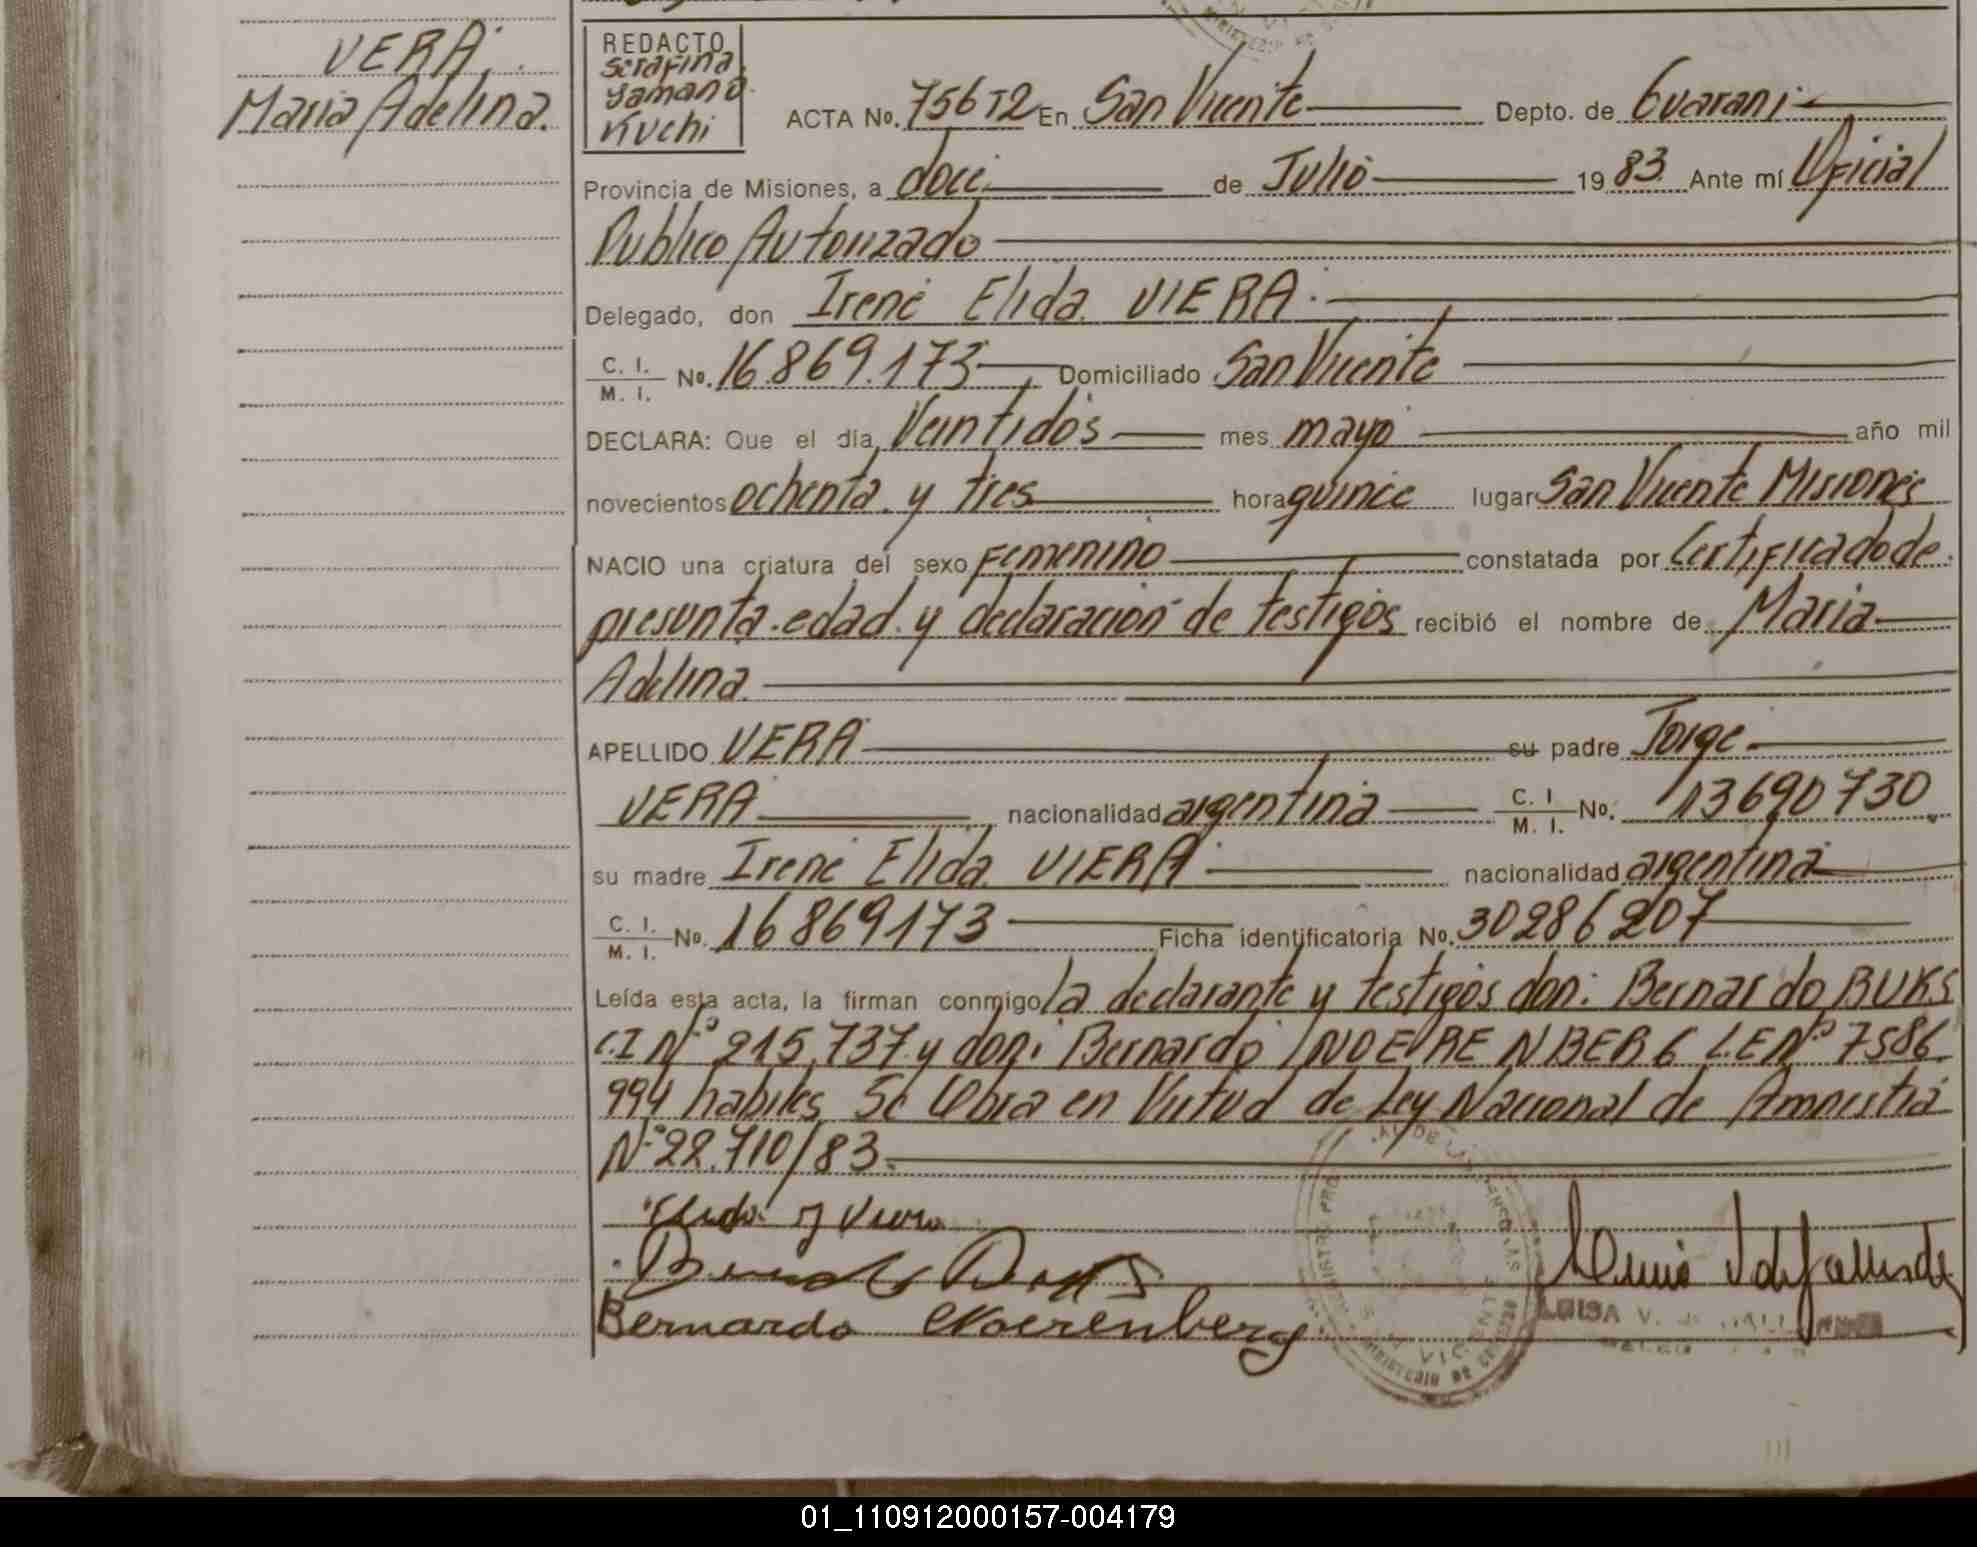 VERA,
Maria Adelina.
REDACTO
Serafina
Yamana
Kuchi
ACTA No. 756 T2 En San Vicente Depto. de Guarani
Provincia de Misiones, a doce de Julio 1983 Ante mí Oficial
Publico Autorizado
Delegado, don Irene Elida VIERA.
C. I. / M. I. No. 16.869.173 Domiciliado San Vicente
DECLARA: Que el día Veintidos mes mayo año mil
novecientos ochenta y tres hora quince lugar San Vicente Misiones
NACIO una criatura del sexo Femenino constatada por Certificado de
presunta edad y declaración de testigos recibió el nombre de Maria
Adelina.
APELLIDO VERA su padre Jorge
VERA nacionalidad argentina C. I. / M. I. No. 13690730
su madre Irene Elida VIERA nacionalidad argentina
C. I. / M. I. No. 16869173 Ficha identificatoria No. 30286207
Leída esta acta, la firman conmigo la declarante y testigos don: Bernardo BUKS
C.I Nº 215.737 y don: Bernardo NOERENBERG L.E Nº 7586.
994 habiles Se Obra en Virtud de Ley Nacional de Amnistia
Nº 22.710/83.
Elida Y Viera
Bernardo
Bernardo Noerenberg
LUISA V.
MINISTERIO DE
01_110912000157-004179